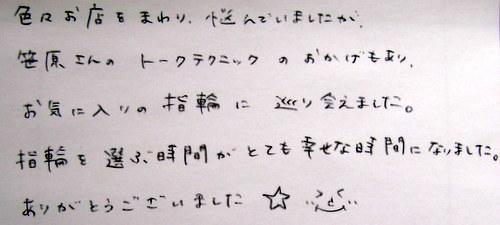 色々お店をまわり、悩んでいましたが、
笹原さんの トークテクニック の おかげもあり、
お気に入りの 指輪 に 巡り会えました。
指輪を 選ぶ時間が とても 幸せな時間になりました。
ありがとうございました ☆